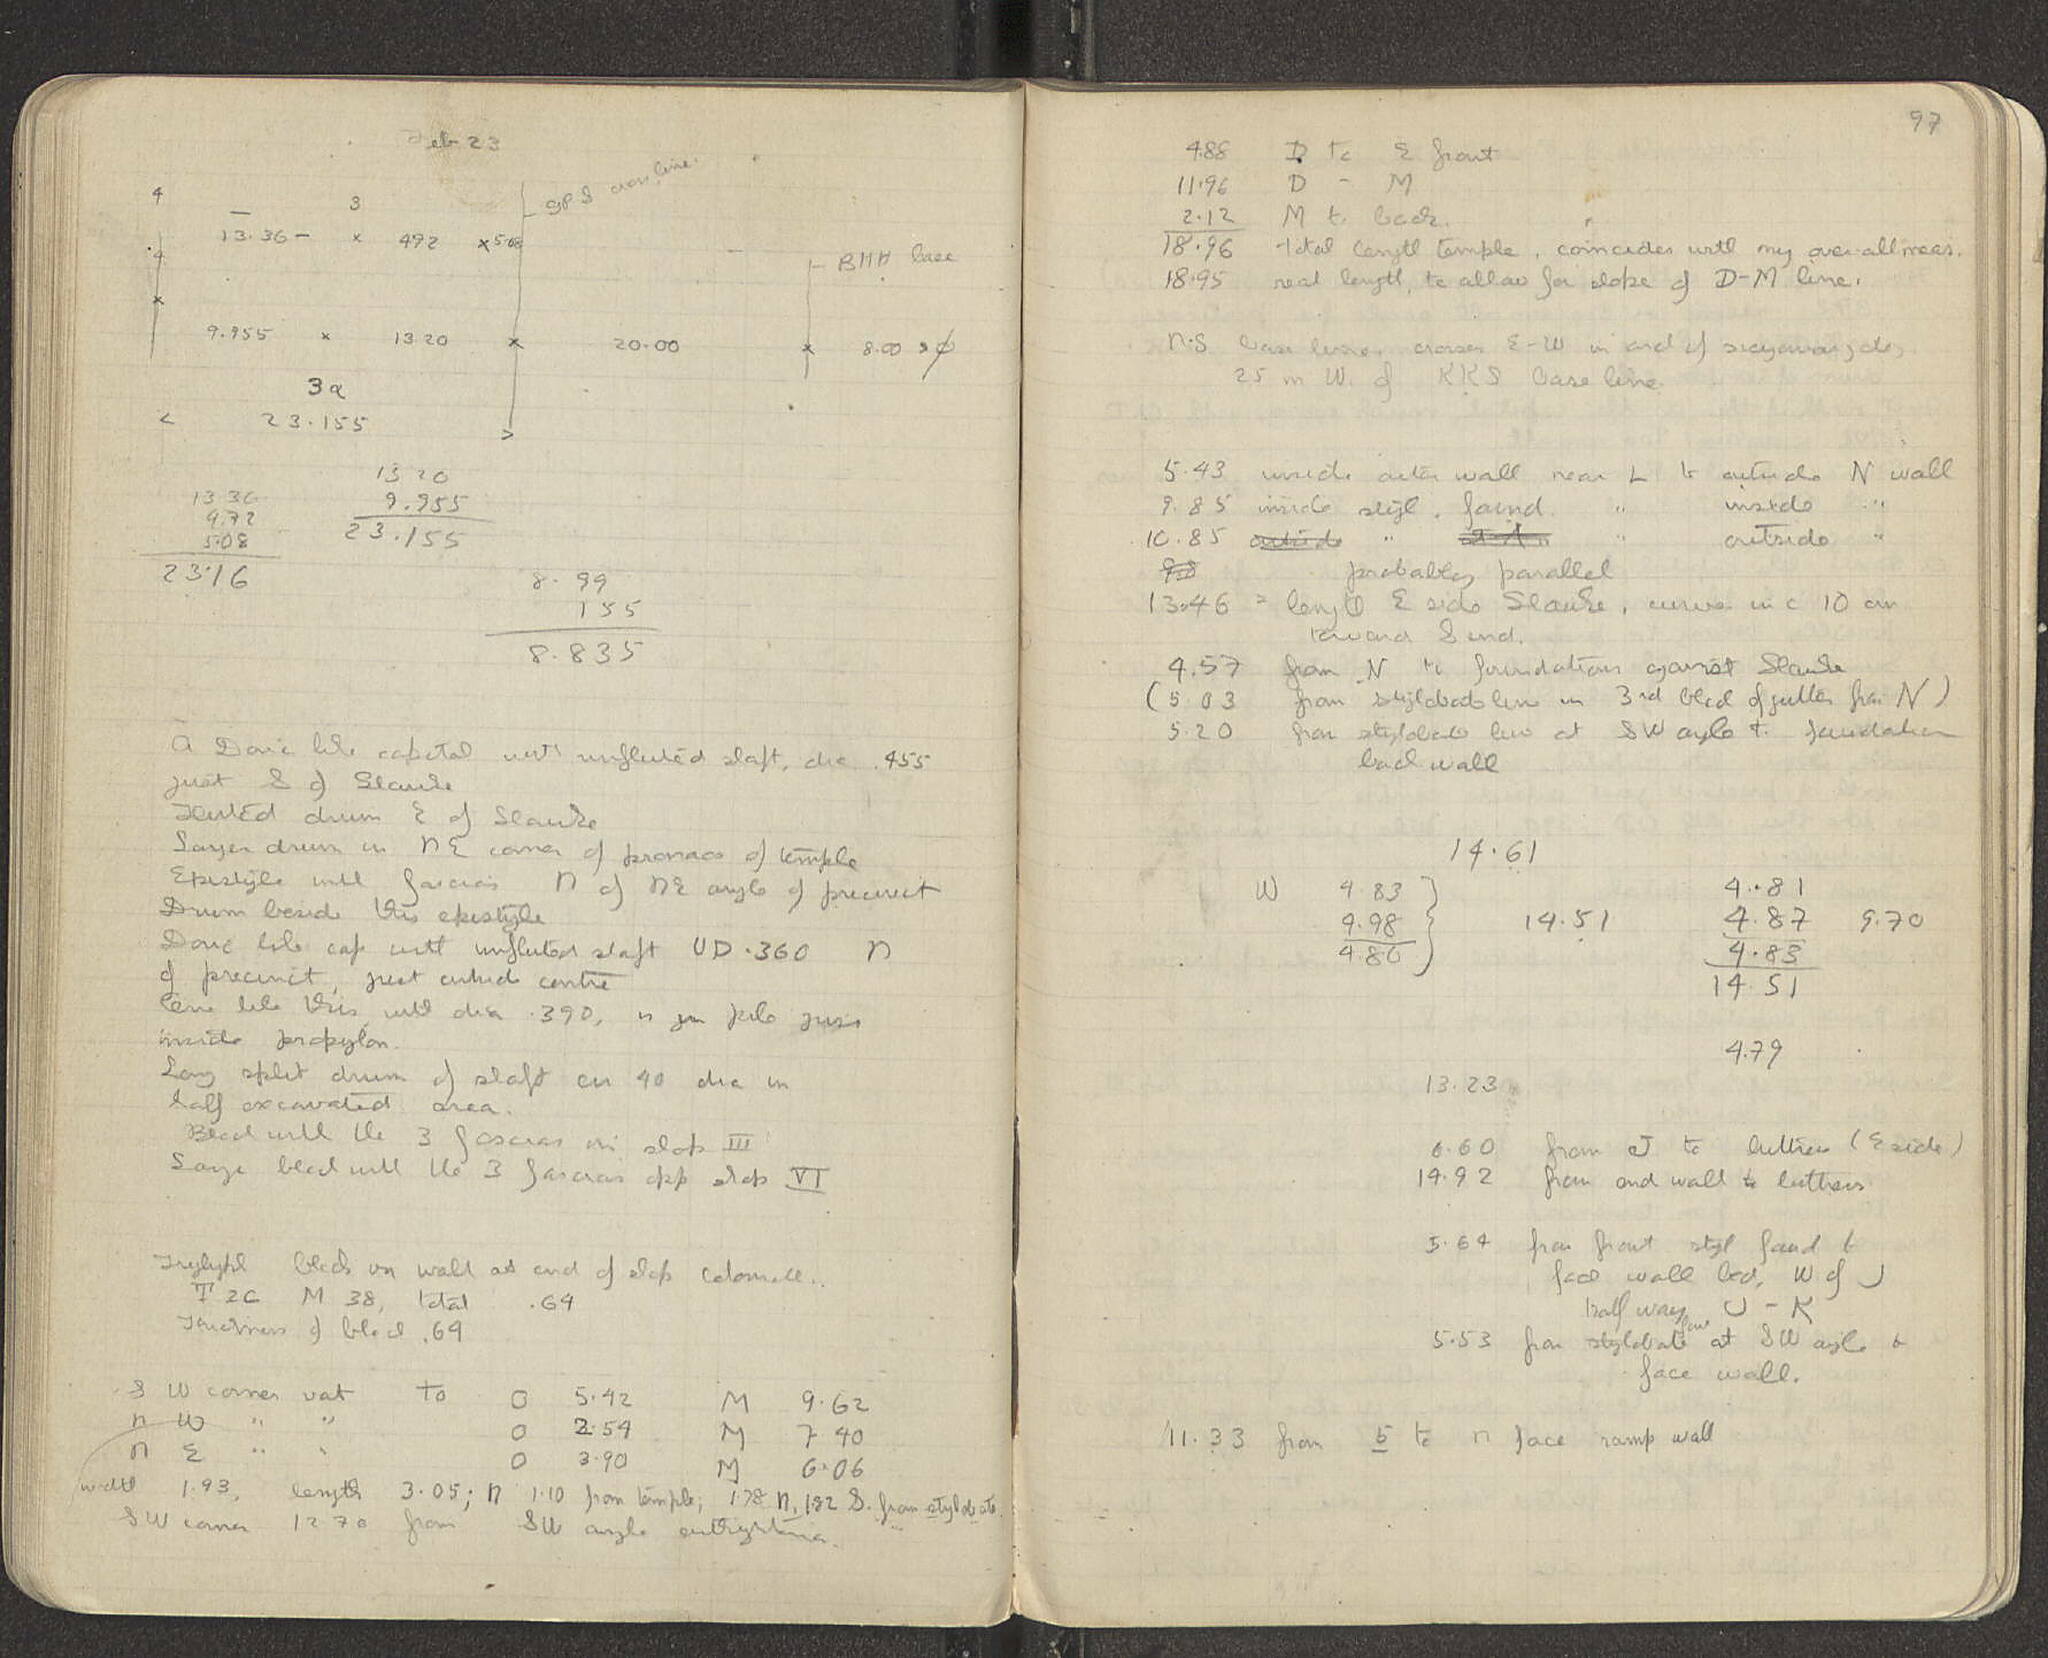 Feb 23
4
3
GPS cross line
13.36 - x 492 x 5.08
4
BHH base
x
9.955 x 13 20 x 20.00 x 8.00
3a
< 23.155 >
13 20
9.955
23.155
13 36
4.72
5.08
23.16
8.99
155
8.835
A Doric like capital with unfluted shaft, dia .455
just S of Slauke
Fluted drum E of Slauke
Larger drum in NE corner of pronaos of temple
Epistyle with fascias N of NE angle of precinct
Drum beside this epistyle
Doric like cap with unfluted shaft UD .360 N
of precinct, just outside centre
One like this with dia .390, in pile just
inside propylon.
Long split drum of shaft 40 dia in
half excavated area.
Block with the 3 fascias in shop III
Large block with the 3 fascias opp shop VI
Triglyph block on wall at end of shop colonnade.
T 26 M 38, total .64
Thickness of block .69
S W corner vat To O 5.42 M 9.62
N W " " O 2.54 M 7.40
N E " " O 3.90 M 6.06
width 1.93, length 3.05; N 1.10 from temple; 1.78 N, 1.82 S. from stylobate
SW corner 12 70 from SW angle
97
4.88 D to E front
11.96 D - M
2.12 M to back.
18.96 total length temple, coincides with my over-all meas.
18.95 real length, to allow for slope of D-M line.
N-S base line crosses E-W in end of
25 m W. of KKS base line
5.43 inside outer wall near L to outside N wall
9.85 inside styl. found. " inside "
10.85 outside " " outside "
9.8 probably parallel
13.46 = length E side Slauke, curves in c 10 cm
toward S end.
4.57 from N to foundations against Slauke
(5.03 from stylobate line in 3rd block of gutter from N)
5.20 from stylobate line at SW angle to foundation
back wall
14.61
W 4.83 4.81
4.98 14.51 4.87 9.70
4.80 4.83
14.51
4.79
13.23
6.60 from J to buttress (E side)
14.92 from end wall to buttress
5.64 from front styl found to
face wall bed, W of J
half way J - K
5.53 from stylobate line at SW angle to
face wall.
11.33 from 5 to N face ramp wall